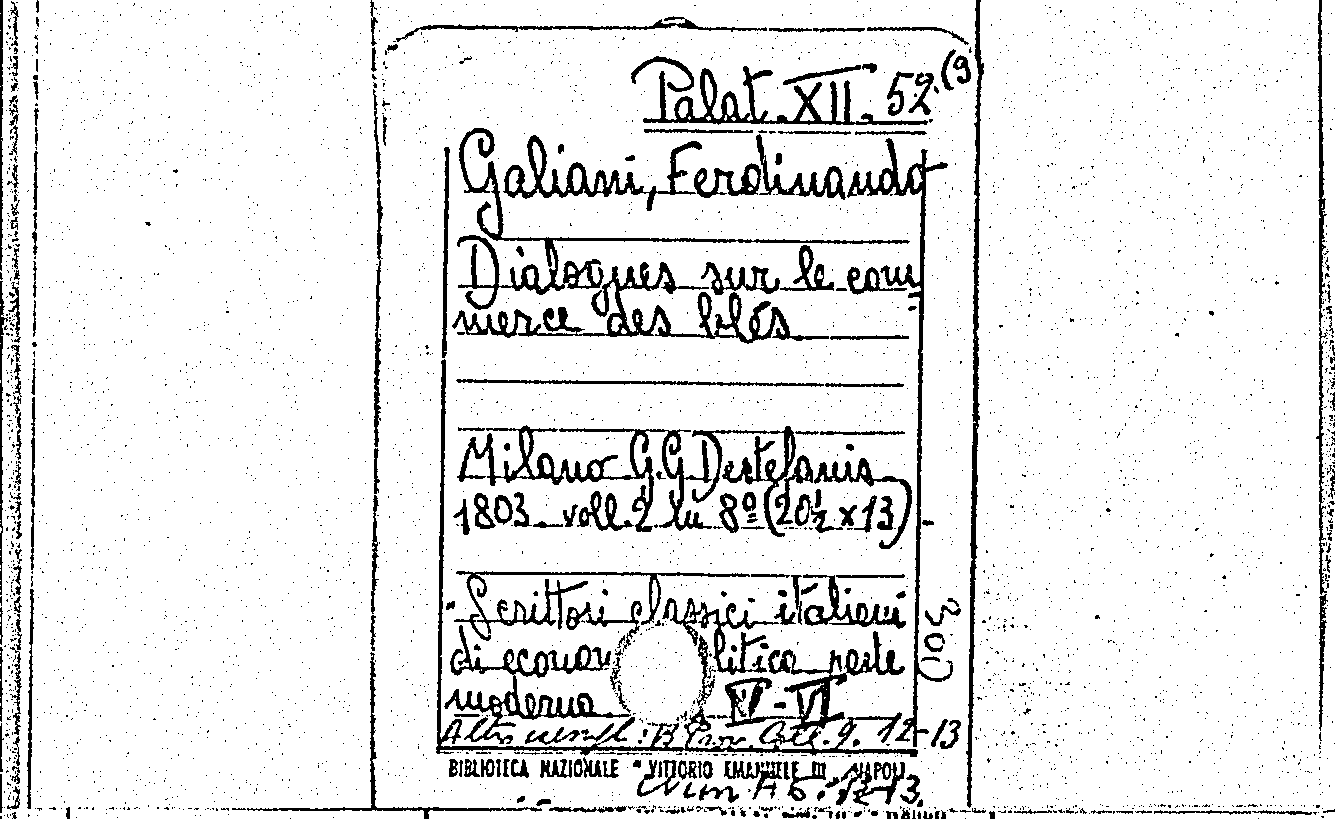 Palat. XII. 52.(9
Galiani, Ferdinando
Dialogues sur le com=
merce des blés.
Milano G.G Destefanis
1803. voll. 2 in 8º (20½ x 13).
Scrittori classici italiani
di econom litica parte
moderna V-VI
Altro esempl.: B Prov. Coll. 9. 12-13
BIBLIOTECA NAZIONALE "VITTORIO EMANUELE III" NAPOLI
12-13.
300